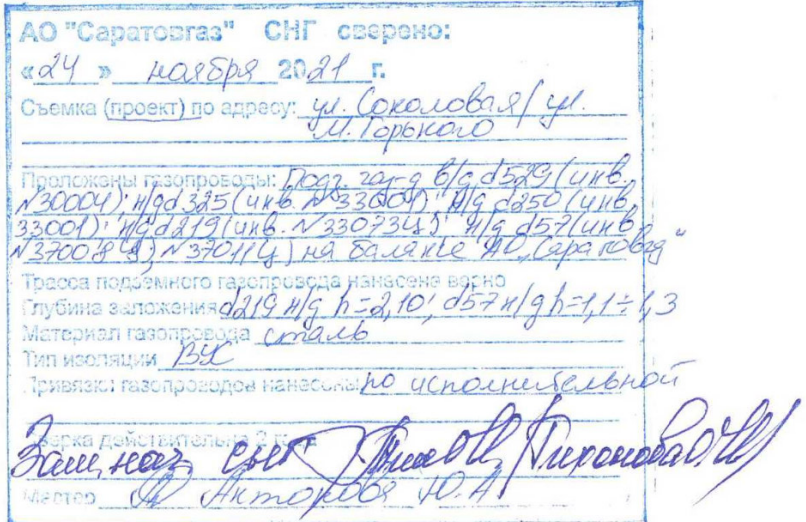 АО "Саратовгаз" СНГ сверено:
«24» ноября 2021 г.
Съемка (проект) по адресу: ул. Соколовая / ул.
М. Горького
Проложены газопроводы: Подз. газ-д в/д d529 (инв.
№30004); н/д d325 (инв. №33001); н/д d250 (инв.
33001); н/д d219 (инв. №33073Ц); н/д d57 (инв.
№37011Ц) на балансе АО „Саратовгаз“
Трасса подземного газопровода нанесена верно
Глубина заложения d219 н/д h=2,10; d57 н/д h=1,1÷1,3
Материал газопровода сталь
Тип изоляции ВУ
Привязки газопроводов нанесены по исполнительной
Сверка действительна 2 года
Зам. нач. СНГ Тихонова О.Ю.
Мастер Антонова Ю.А.